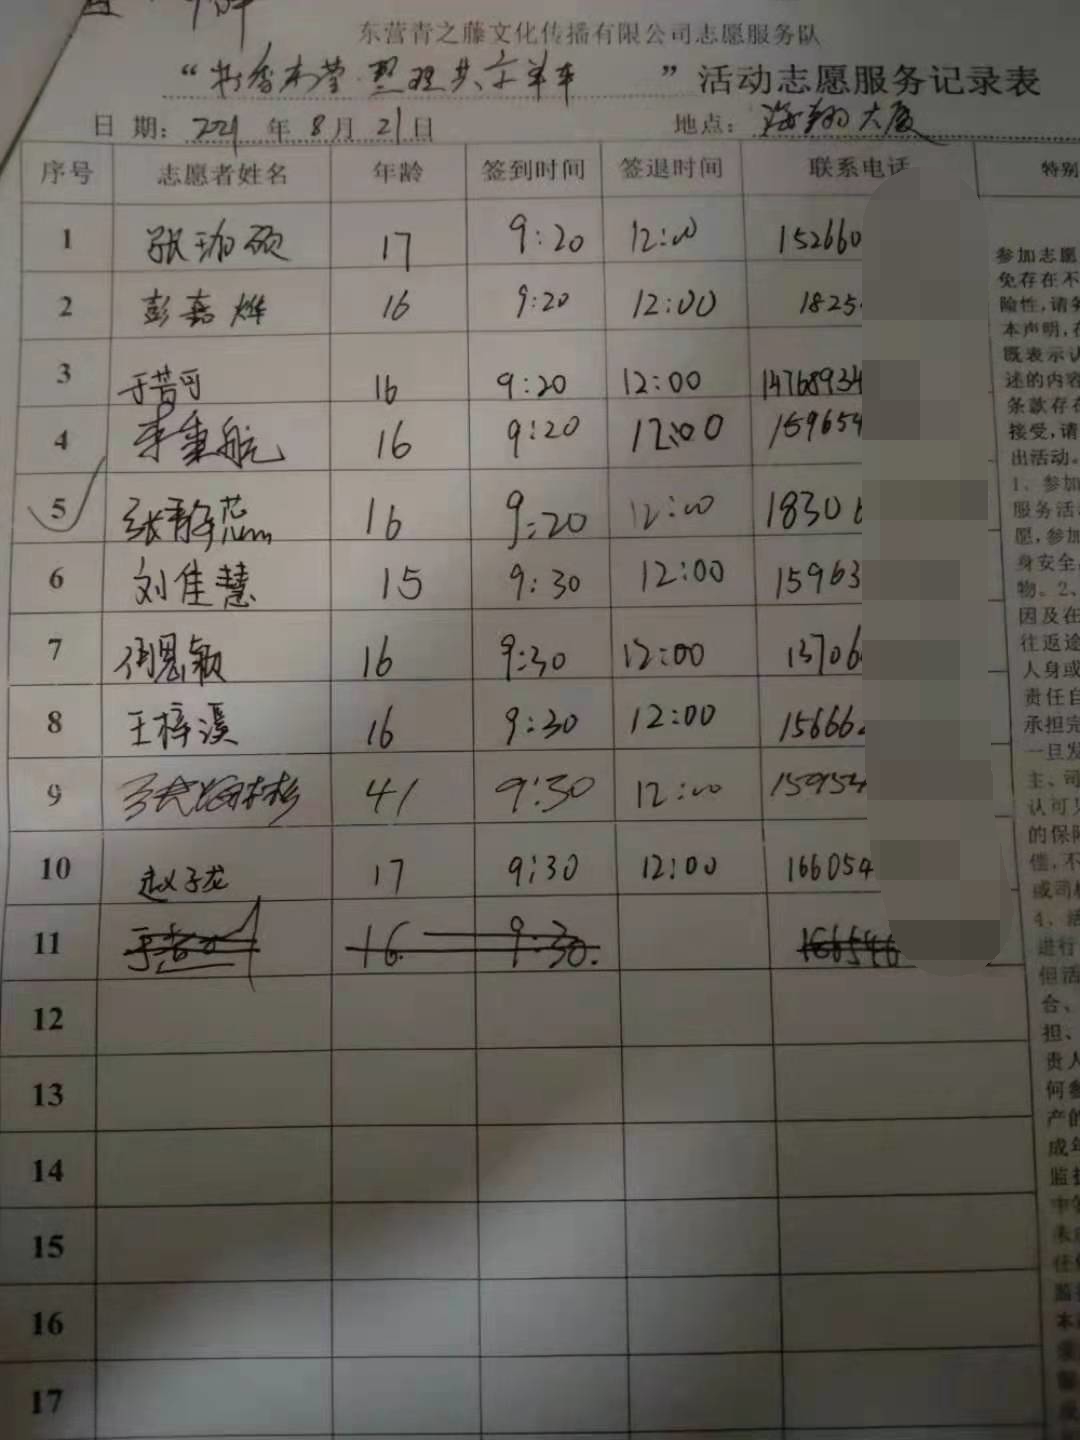 东营青之藤文化传播有限公司志愿服务队
“书香东营·整理共享单车”活动志愿服务记录表
日 期: 2021 年 8 月 21 日 地点: 海翔大厦
序号 志愿者姓名 年龄 签到时间 签退时间 联系电话 特别
1 张珈硕 17 9:20 12:00 152660
2 彭嘉烨 16 9:20 12:00 1825
3 于昔可 16 9:20 12:00 14768934
4 李重航 16 9:20 12:00 159654
5 张静蕊 16 9:20 12:00 18306
6 刘佳慧 15 9:30 12:00 15963
7 思颖 16 9:30 12:00 13706
8 王梓溪 16 9:30 12:00 15666
9 41 9:30 12:00 159954
10 赵子龙 17 9:30 12:00 166054
11 16 9:30. 166546
12
13
14
15
16
17
参加志愿
免存在不
险性,请务
本声明,在
既表示认
述的内容
条款存在
接受,请
出活动。
1、参加
服务活
愿,参加
身安全
物。2、
因及在
往返途
人身或
责任自
承担完
一旦发
主、司
认可
的保障
偿,不
或司
4、活
进行
但活
合、
担、
责人
何参
产的
成年
监